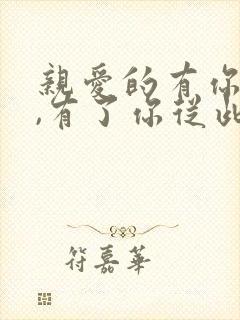 親愛的有你
,有了你從此
符嘉華